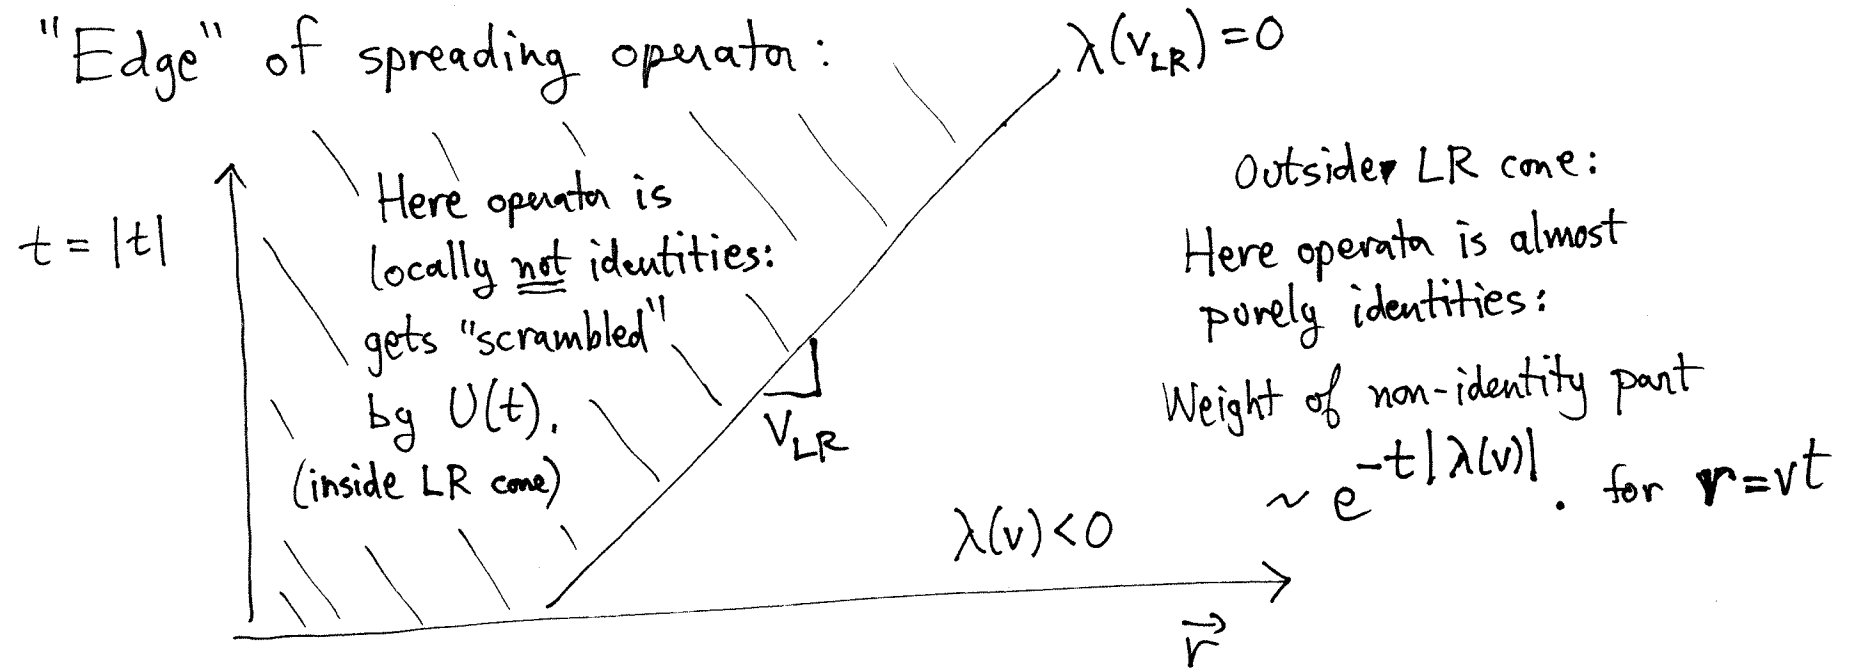 "Edge" of spreading operator:
λ(v_LR)=0
t=|t|
Here operator is
locally not identities:
gets "scrambled"
by U(t).
(inside LR cone)
v_LR
Outside LR cone:
Here operator is almost
purely identities:
Weight of non-identity part
~ e^{-t|λ(v)|}. for r=vt
λ(v)<0
r⃗